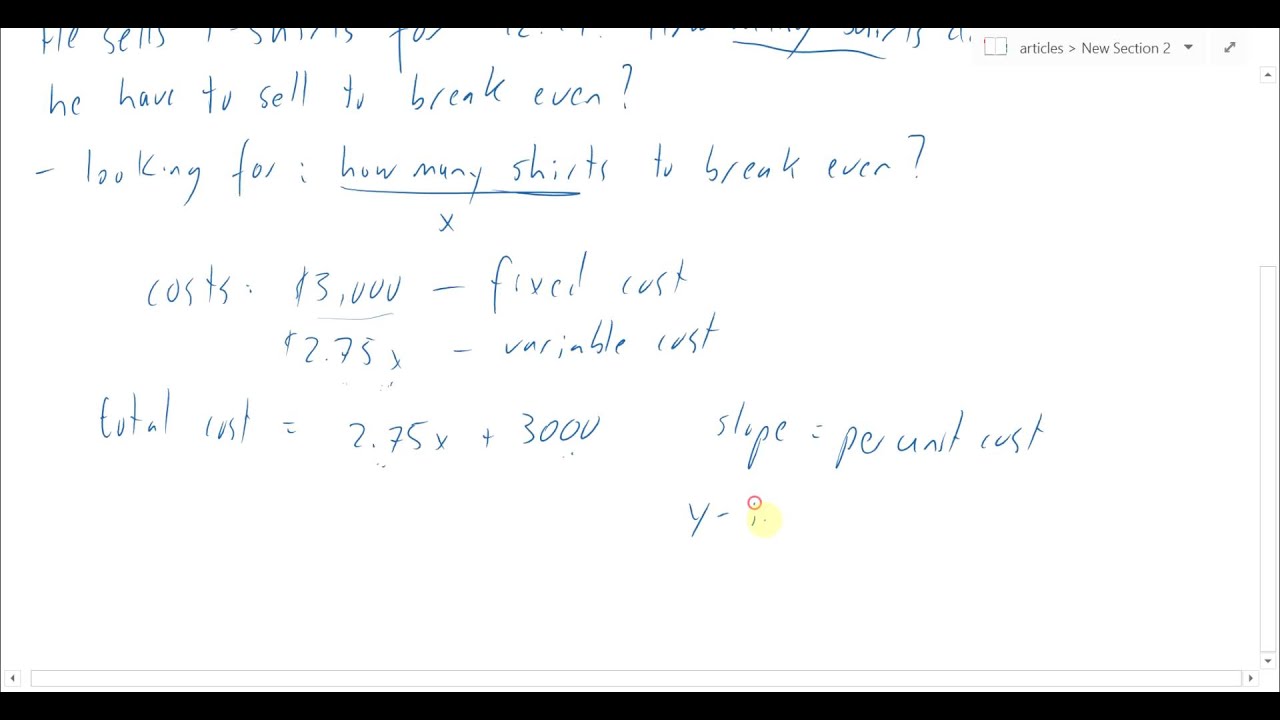 He sells T-shirts for
articles > New Section 2
he have to sell to break even?
- looking for: how many shirts to break even?
x
costs: $3,000 - fixed cost
$2.75x - variable cost
total cost = 2.75x + 3000
slope = per unit cost
y-